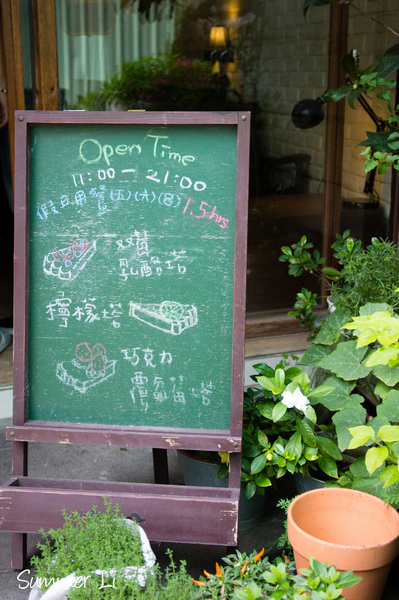 Open Time
11:00 - 21:00
假日用餐(五)(六)(日) 1.5hrs
双莓
乳酪塔
檸檬塔
巧克力
香蕉塔
Summer Li